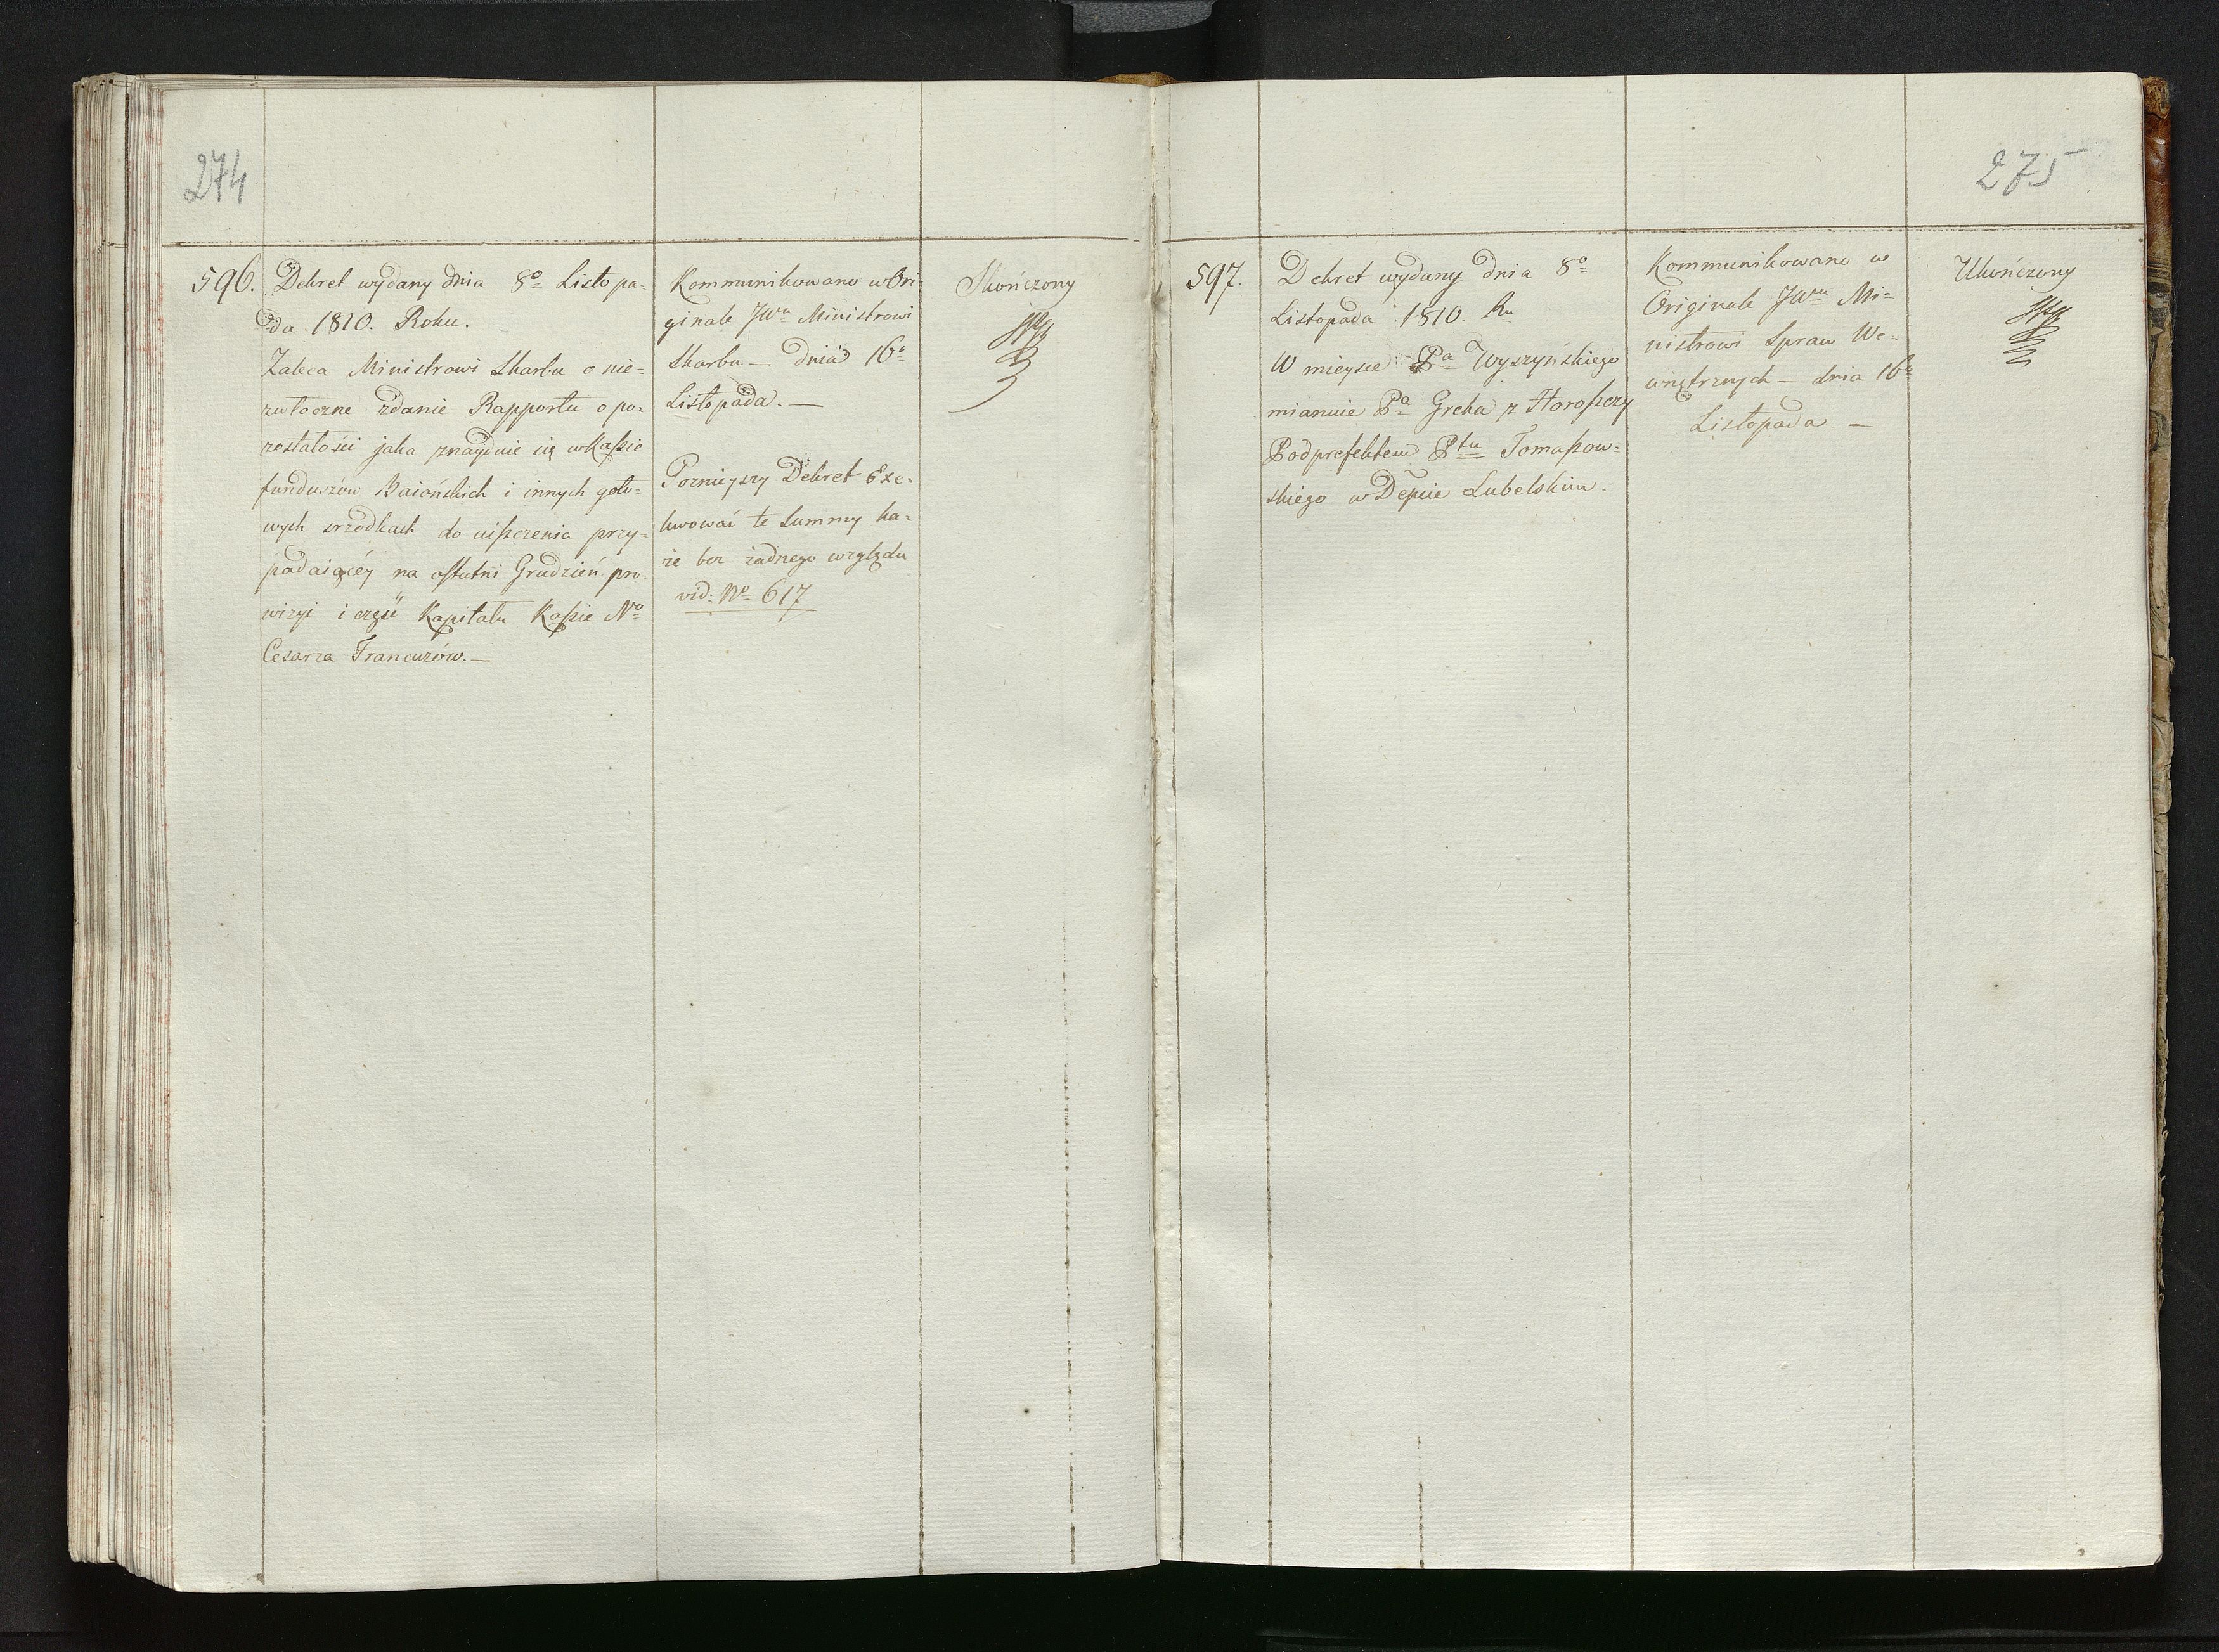 274
596.
Dekret wydany dnia 8º Listopa=
da 1810. Roku.
Zaleca Ministrowi Skarbu o nie=
zwłoczne zdanie Rapportu o po=
zostałości jaka znayduie się w Kaſsie
funduszów Baiońskich i innych goto=
wych srzodkach do uiſzczenia przy=
padaiącéy na oſtatni Grudzień pro=
wizyi i częśi Kapitału Kaſsie Nº
Cesarza Francuzów.—
Kommunikowano w Ori=
ginale JWu Ministrowi
Skarbu — dnia 16º
Listopada. —
Pozniejszy Dekret Exe=
kwować te Summy ka=
że bez żadnego względu
vid: Nº 617
Skończony
275
597.
Dekret wydany dnia 8º
Listopada 1810. Ru
W mieysce Pa Wyszyńskiego
mianuie Pa Greka z Horoſzczy
Podprefektem Ptu Tomaſzow=
skiego w Depcie Lubelskim.
Kommunikowano w
Originale JWu Mi=
nistrowi Spraw We=
wnętrznych — dnia 16º
Listopada —
Ukończony